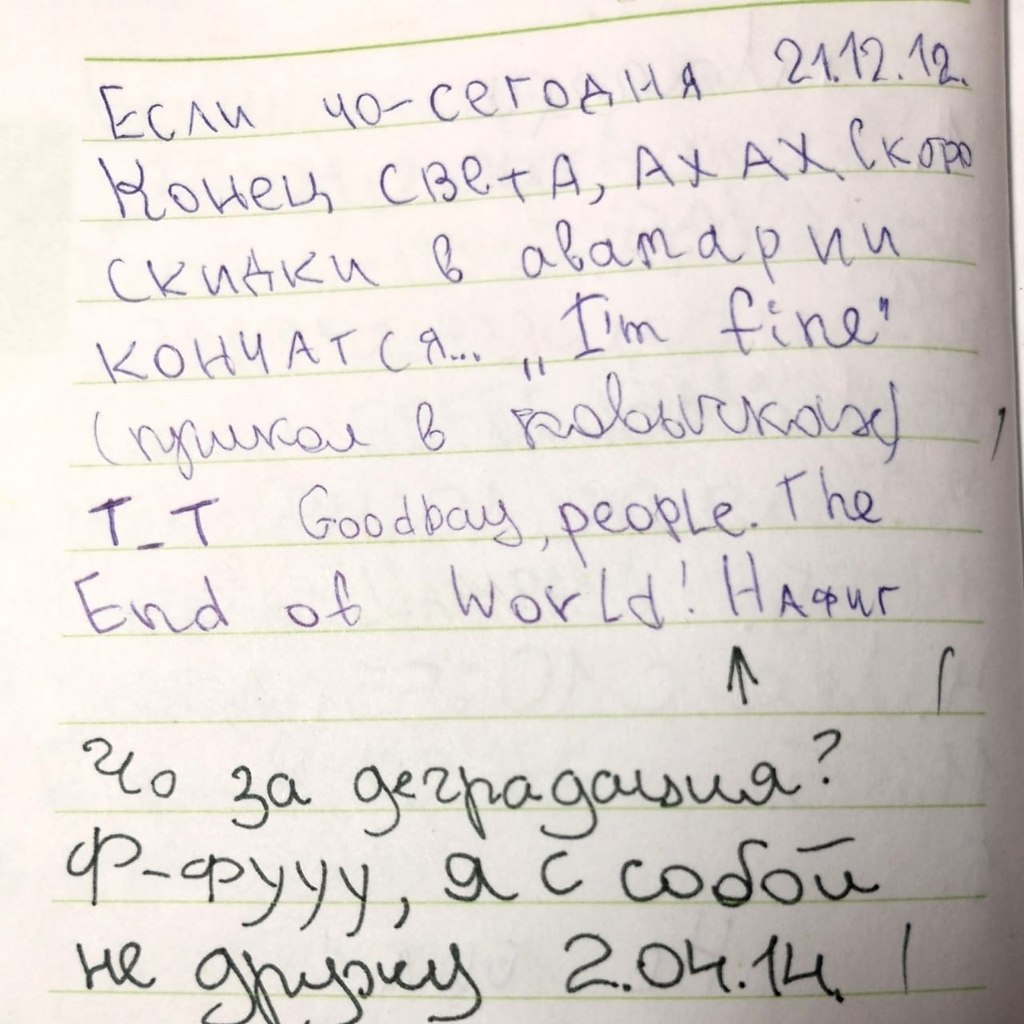 Если чо-сегодня 21.12.12.
Конец света, АХ АХ Скоро
скидки в аватарии
кончатся... „I'm fine"
(пушкал в кавычках)
T_T Goodbay, people. The
End of World! Нафиг
↑
Чо за деградация?
Ф-фууу, я с собой
не дружу 2.04.14.